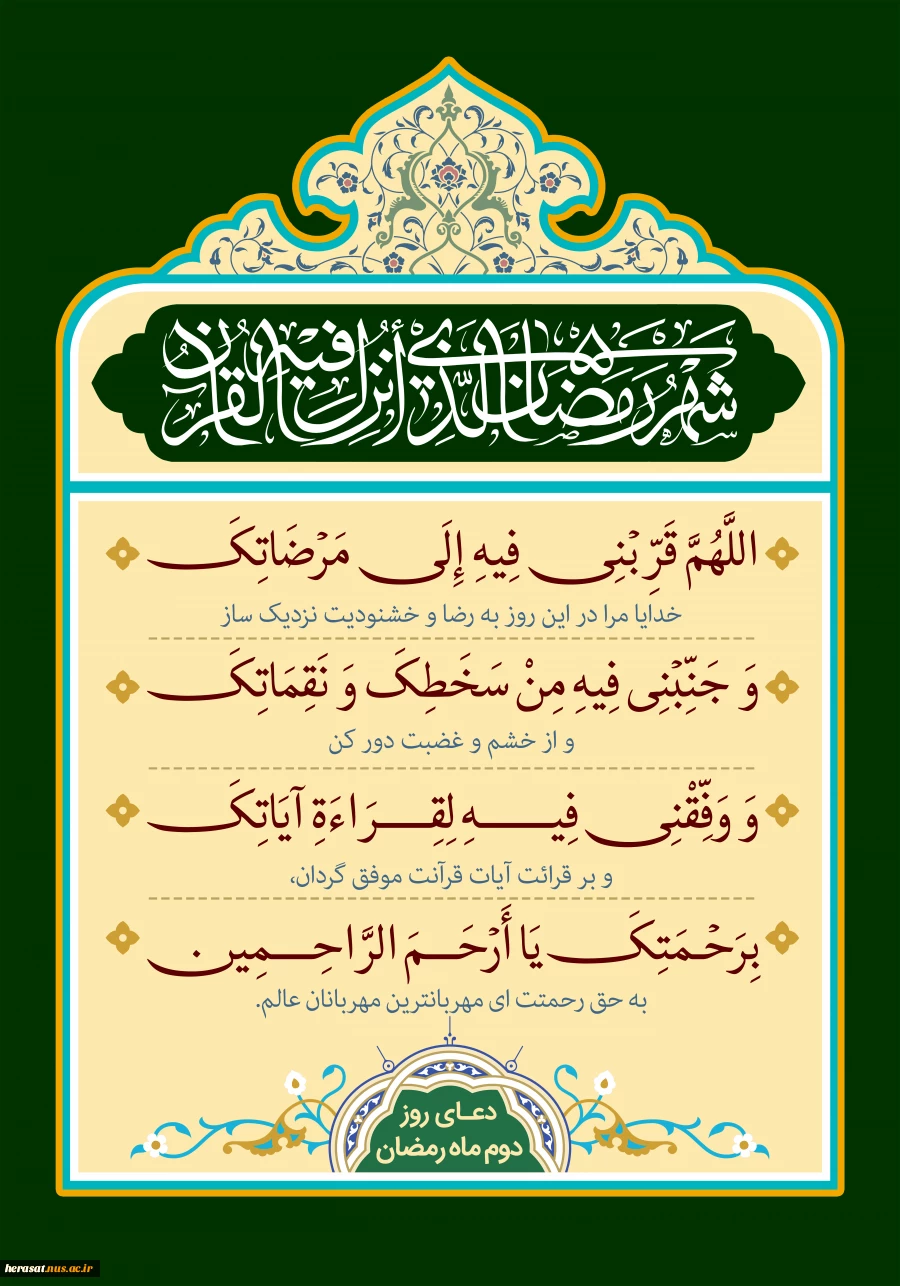 شَهْرُ رَمَضَانَ الَّذِي أُنْزِلَ فِيهِ الْقُرْآنُ
اللَّهُمَّ قَرِّبْنِی فِیهِ إِلَی مَرْضَاتِکَ
خدایا مرا در این روز به رضا و خشنودیت نزدیک ساز
وَ جَنِّبْنِی فِیهِ مِنْ سَخَطِکَ وَ نَقِمَاتِکَ
و از خشم و غضبت دور کن
وَ وَفِّقْنِی فِیهِ لِقِرَاءَةِ آیَاتِکَ
و بر قرائت آیات قرآنت موفق گردان،
بِرَحْمَتِکَ یَا أَرْحَمَ الرَّاحِمِین
به حق رحمتت ای مهربانترین مهربانان عالم.
دعای روز
دوم ماه رمضان
herasat.nus.ac.ir